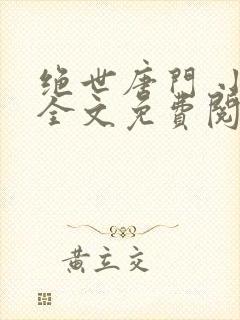 絕世唐門小
全文免費閱
黃立交